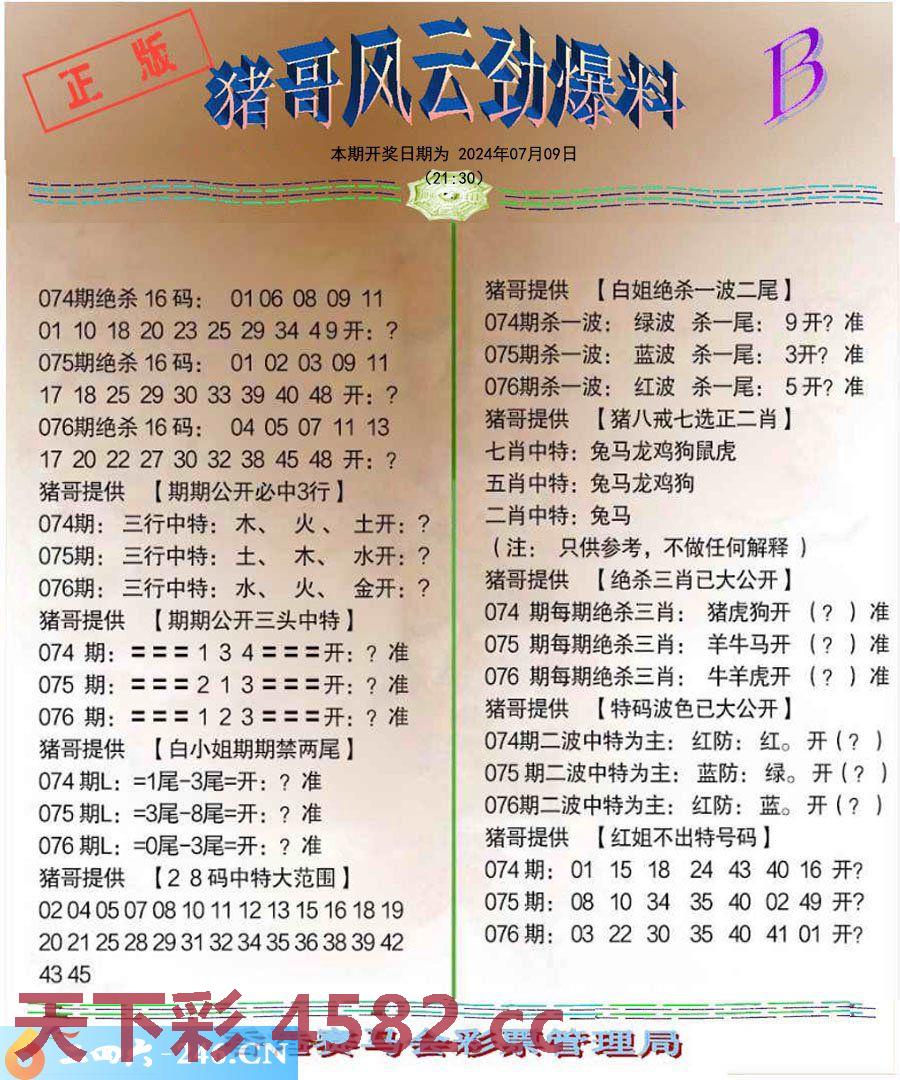 正版
猪哥风云劲爆料
B
本期开奖日期为 2024年07月09日
(21:30)
074期绝杀 16 码： 01 06 08 09 11
01 10 18 20 23 25 29 34 49 开：?
075期绝杀 16 码： 01 02 03 09 11
17 18 25 29 30 33 39 40 48 开：?
076期绝杀 16 码： 04 05 07 11 13
17 20 22 27 30 32 38 45 48 开：?
猪哥提供 【期期公开必中3行】
074期：三行中特：木、 火、 土开：?
075期：三行中特：土、 木、 水开：?
076期：三行中特：水、 火、 金开：?
猪哥提供 【期期公开三头中特】
074 期：===1 3 4===开：? 准
075 期：===2 1 3===开：? 准
076 期：===1 2 3===开：? 准
猪哥提供 【白小姐期期禁两尾】
074 期L：=1尾-3尾=开：? 准
075 期L：=3尾-8尾=开：? 准
076 期L：=0尾-3尾=开：? 准
猪哥提供 【28码中特大范围】
02 04 05 07 08 10 11 12 13 15 16 18 19
20 21 25 28 29 31 32 34 35 36 38 39 42
43 45
猪哥提供 【白姐绝杀一波二尾】
074期杀一波： 绿波 杀一尾： 9开? 准
075期杀一波： 蓝波 杀一尾： 3开? 准
076期杀一波： 红波 杀一尾： 5开? 准
猪哥提供 【猪八戒七选正二肖】
七肖中特：兔马龙鸡狗鼠虎
五肖中特：兔马龙鸡狗
二肖中特：兔马
（注： 只供参考，不做任何解释 ）
猪哥提供 【绝杀三肖已大公开】
074 期每期绝杀三肖： 猪虎狗开 （? ）准
075 期每期绝杀三肖： 羊牛马开 （? ）准
076 期每期绝杀三肖： 牛羊虎开 （? ）准
猪哥提供 【特码波色已大公开】
074期二波中特为主：红防：红。开（? ）
075期二波中特为主：蓝防：绿。开（? ）
076期二波中特为主：红防：蓝。开（? ）
猪哥提供 【红姐不出特号码】
074 期：01 15 18 24 43 40 16 开?
075 期：08 10 34 35 40 02 49 开?
076 期：03 22 30 35 40 41 01 开?
天下彩 4582.cc
二四六-246.CN
赛马会彩票管理局